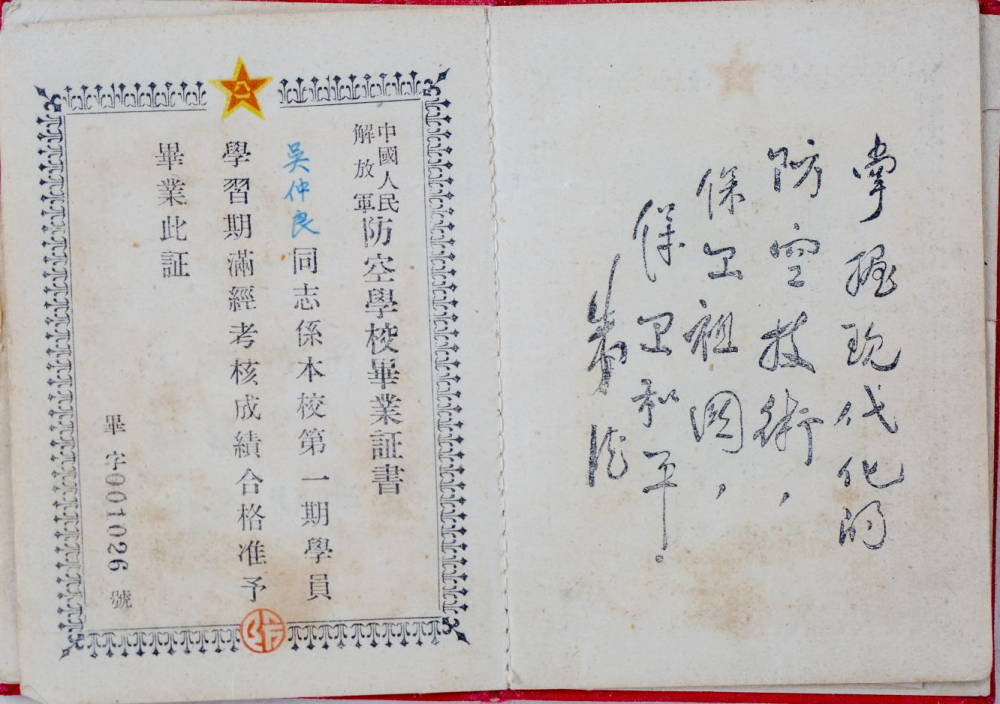 掌握现代化的
防空技術，
保卫祖国，
保卫和平。
朱德
中國人民解放軍防空學校畢業証書
吴仲良同志係本校第一期學員
學習期滿經考核成績合格准予
畢業此証
畢字001026號
八一